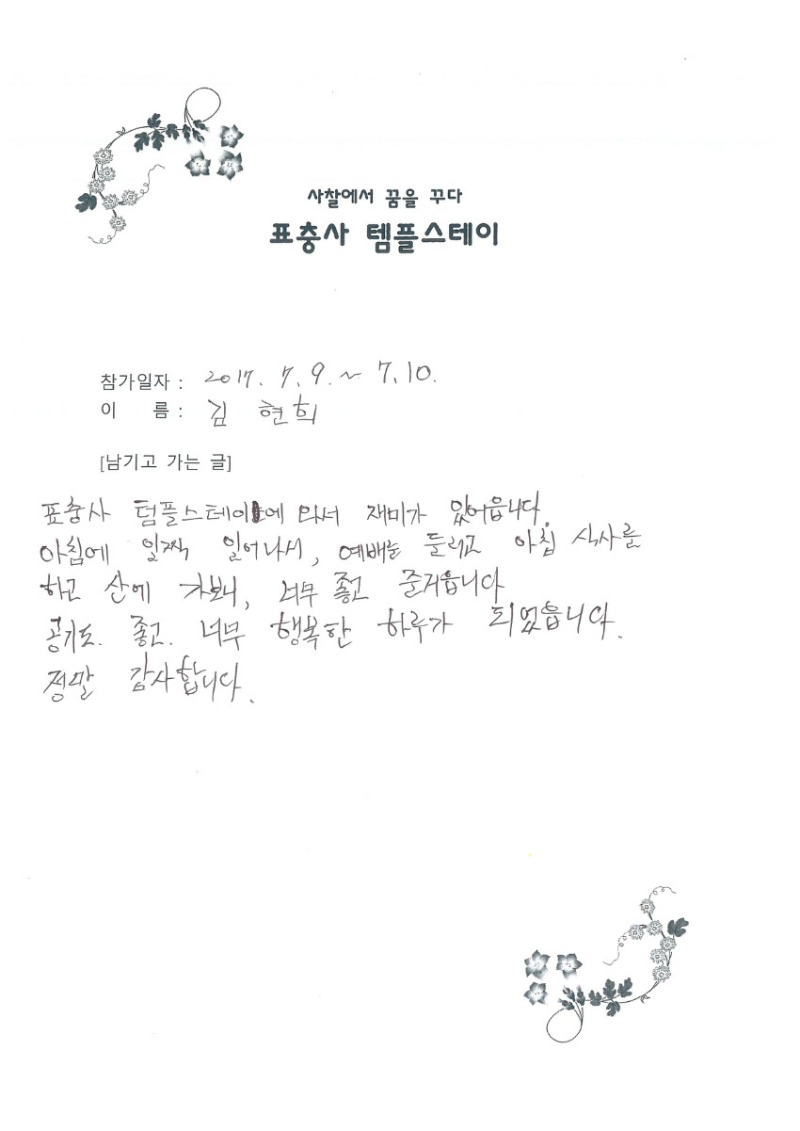 사찰에서 꿈을 꾸다
표충사 템플스테이
참가일자 : 2017. 7. 9. ~ 7.10.
이 름 : 김 현희
[남기고 가는 글]
표충사 텀플스테이에 와서 재미가 있어읍니다.
아침에 일찍 일어나서, 예배는 들리고 아침 식사를
하고 산에 가보니, 너무 좋고 준거읍니다
공기도. 좋고. 너무 행복한 하루가 되었읍니다.
정말 감사합니다.